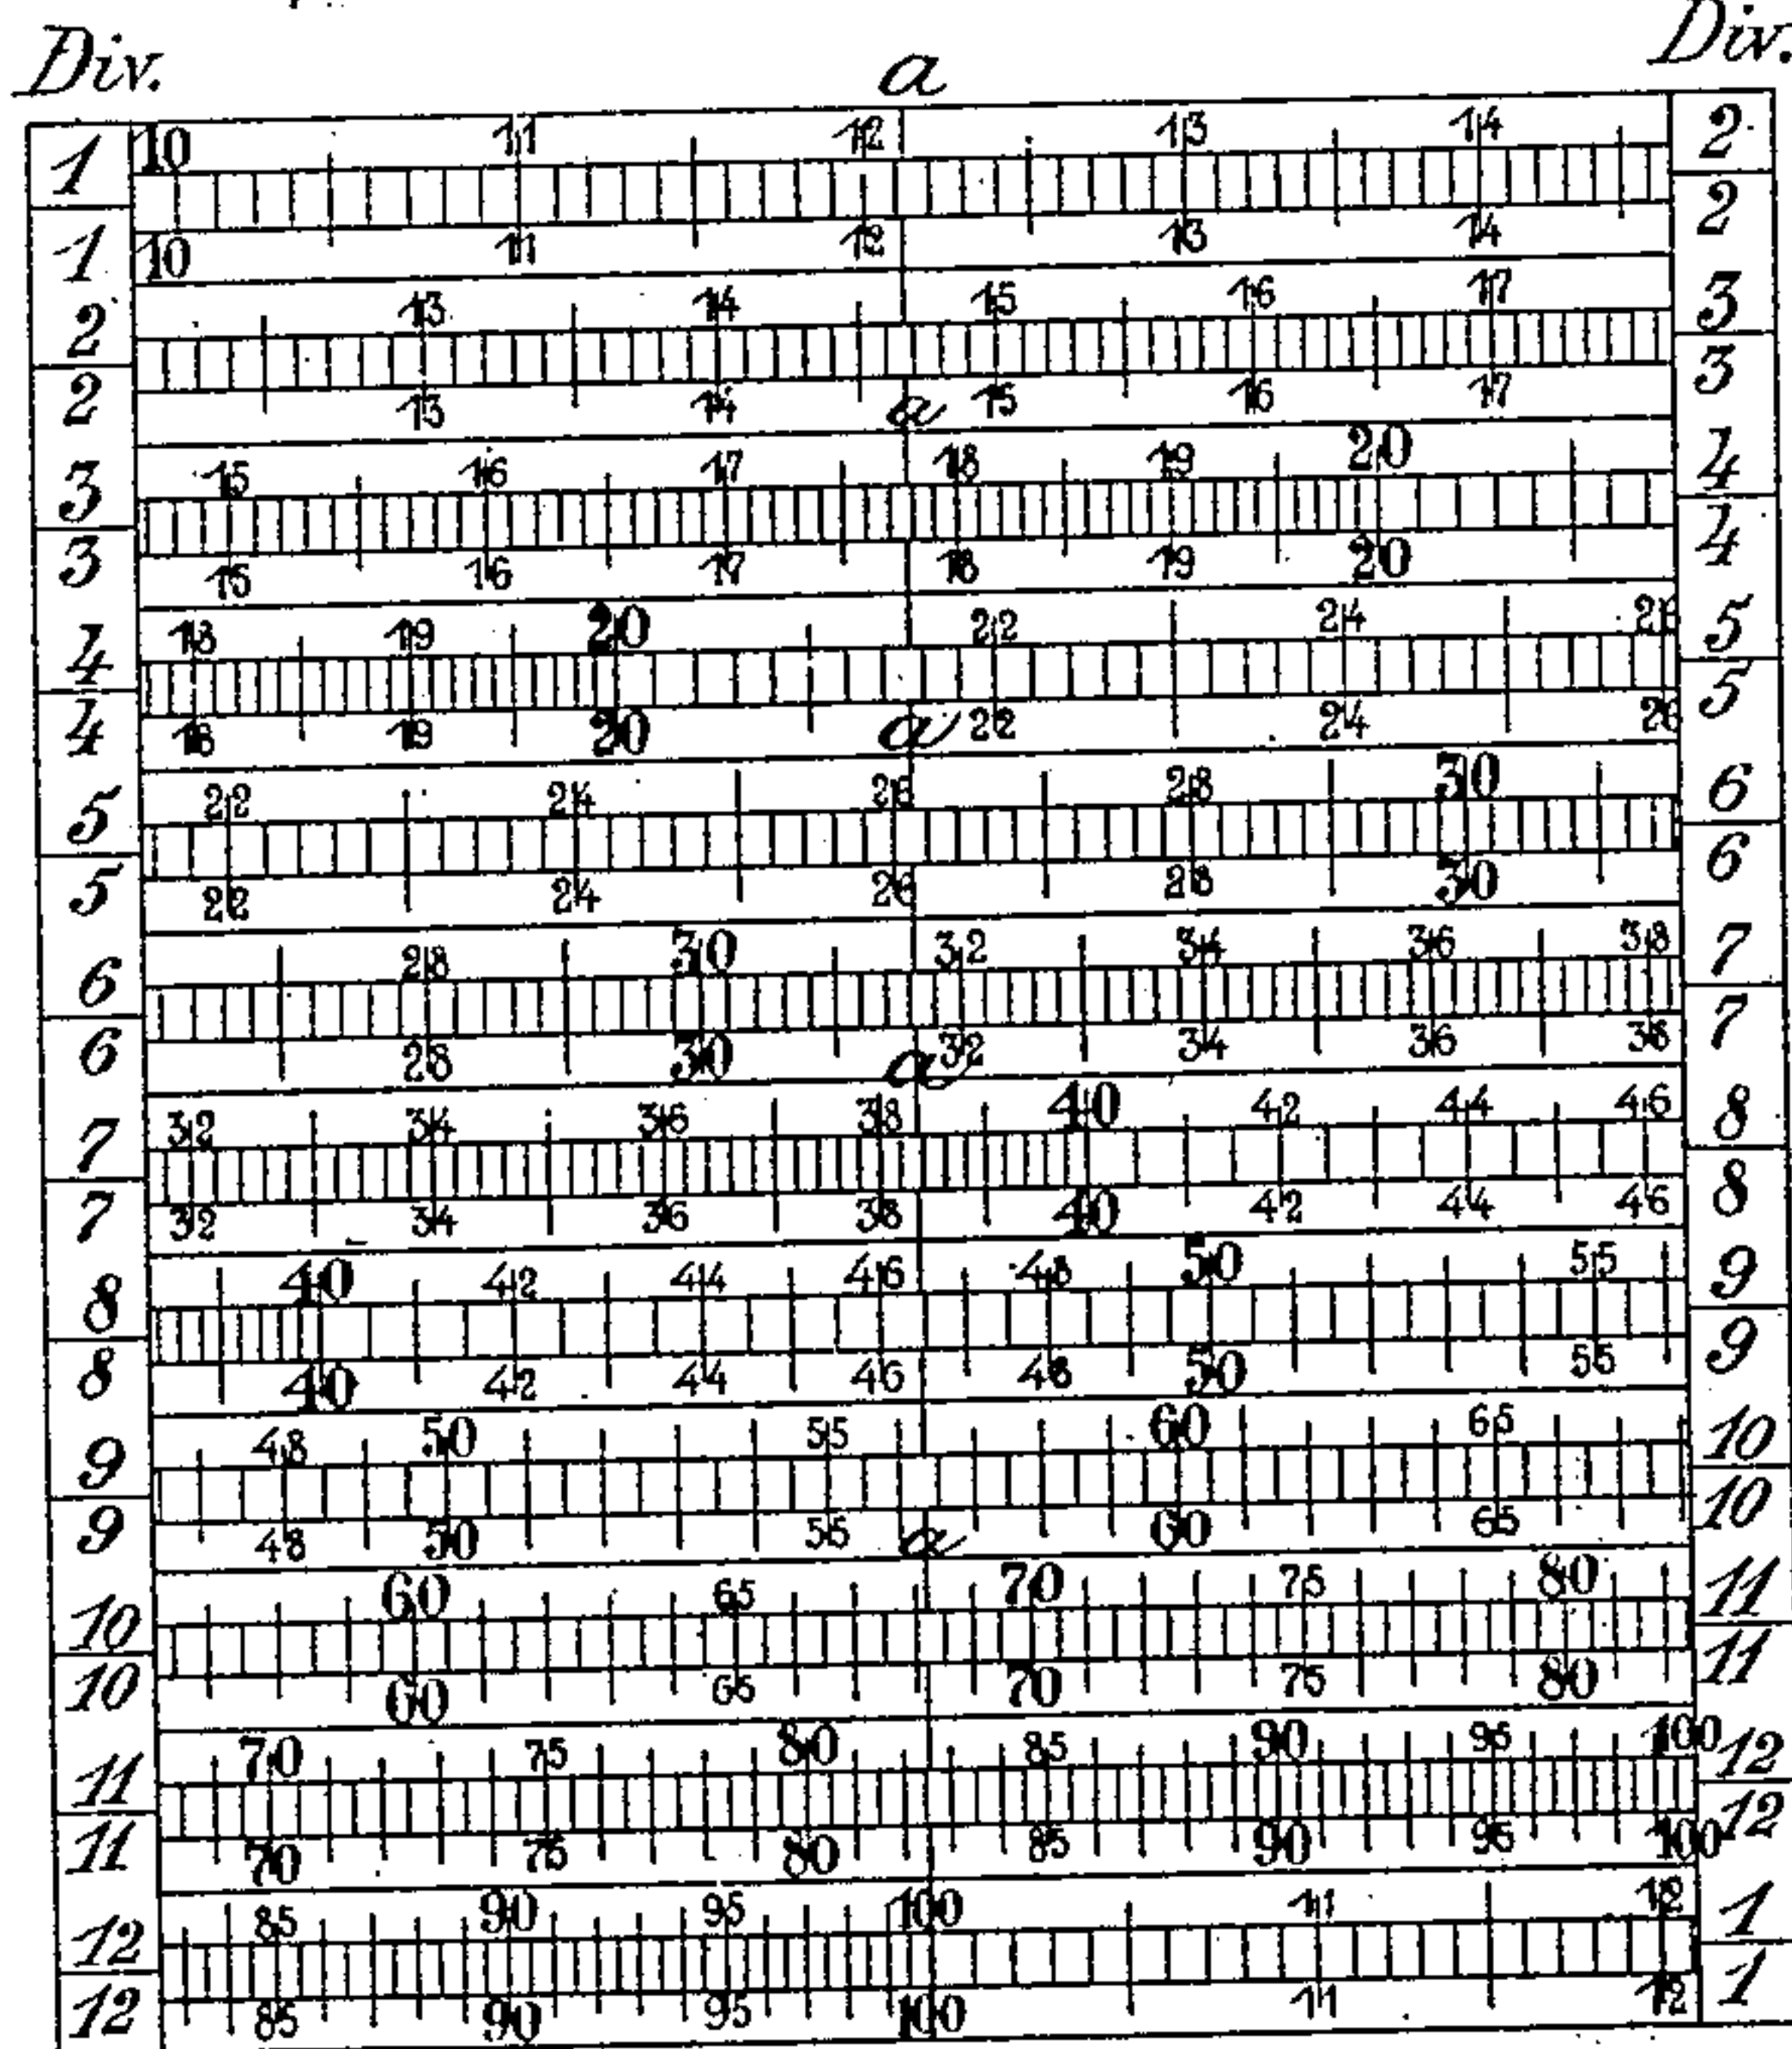 Div. a Div.
1 10 11 12 13 14 2
1 10 11 12 13 14 2
2 13 14 15 16 17 3
2 13 14 a 15 16 17 3
3 15 16 17 18 19 20 4
3 15 16 17 18 19 20 4
4 18 19 20 22 24 26 5
4 18 19 20 a 22 24 26 5
5 22 24 26 28 30 6
5 22 24 26 28 30 6
6 28 30 32 34 36 38 7
6 28 30 a 32 34 36 38 7
7 32 34 36 38 40 42 44 46 8
7 32 34 36 38 40 42 44 46 8
8 40 42 44 46 48 50 55 9
8 40 42 44 46 48 50 55 9
9 48 50 55 60 65 10
9 48 50 55 a 60 65 10
10 60 65 70 75 80 11
10 60 65 70 75 80 11
11 70 75 80 85 90 95 100 12
11 70 75 80 85 90 95 100 12
12 85 90 95 100 11 12 1
12 85 90 95 100 11 12 1